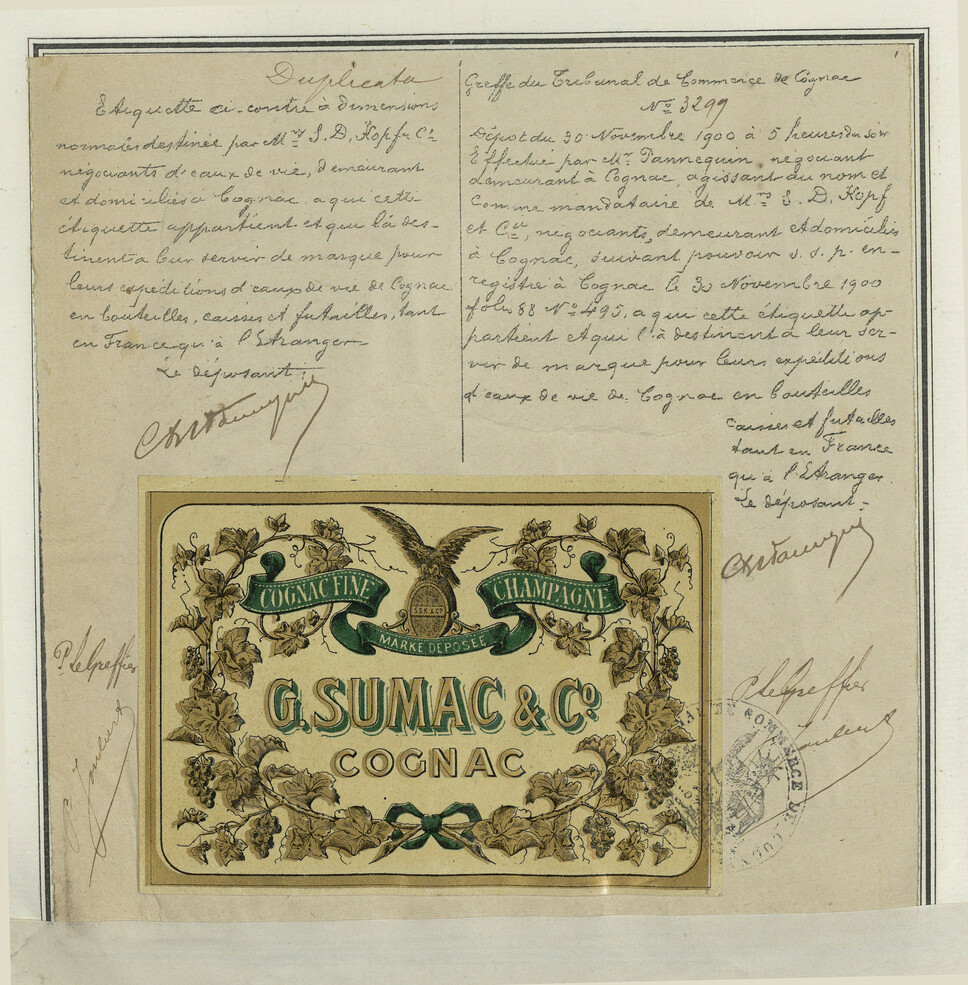 Duplicata
Etiquette ci-contre à dimensions
normales destinée par Mrs S. D. Kopf & Cie
négociants d'eaux de vie, demeurant
et domiciliés à Cognac, a qui cette
étiquette appartient et qui la des-
tinent a leur servir de marque pour
leurs expeditions d'eaux de vie de Cognac
en bouteilles, caisses et futailles, tant
en France qu'à l'Etranger
Le déposant:
Greffe du Tribunal de Commerce de Cognac
No 3299
Dépôt du 30 Novembre 1900 à 5 heures du soir
Effectué par Mr Pannequin, négociant
demeurant à Cognac, agissant au nom et
comme mandataire de Mrs S. D. Kopf
et Cie, négociants, demeurant et domiciliés
à Cognac, suivant pouvoir s. s. p. en-
registré à Cognac le 30 Novembre 1900
folio 88 No 495, a qui cette étiquette ap-
partient et qui l'a destinent a leur ser-
vir de marque pour leurs expéditions
d'eaux de vie de Cognac en bouteilles
caisses et futailles
tant en France
qu'à l'Etranger
Le déposant:
P. le Greffier
P. le Greffier
COGNAC FINE CHAMPAGNE
S.D.K & Co
MARKE DEPOSÉE
G. SUMAC & Co
COGNAC
COMMERCE DE